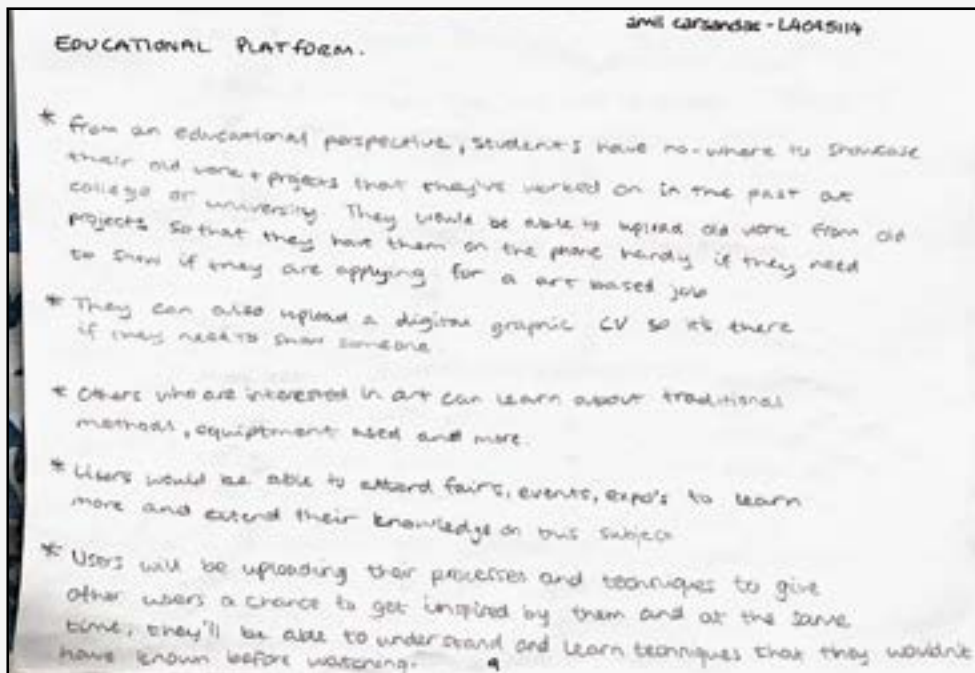 amil carsandas - L4045114
EDUCATIONAL PLATFORM.
* from an educational perspective, students have no-where to showcase
their old work + projects that they've worked on in the past at
college or university. They would be able to upload old work from old
projects so that they have them on the phone handy if they need
to show if they are applying for a art based job
* They can also upload a digital graphic CV so it's there
if they need to show someone
* Others who are interested in art can learn about traditional
methods, equiptment used and more.
* Users would be able to attend fairs, events, expo's to learn
more and extend their knowledge on this subject
* Users will be uploading their processes and techniques to give
other users a chance to get inspired by them and at the same
time, they'll be able to understand and learn techniques that they wouldn't
have known before watching.